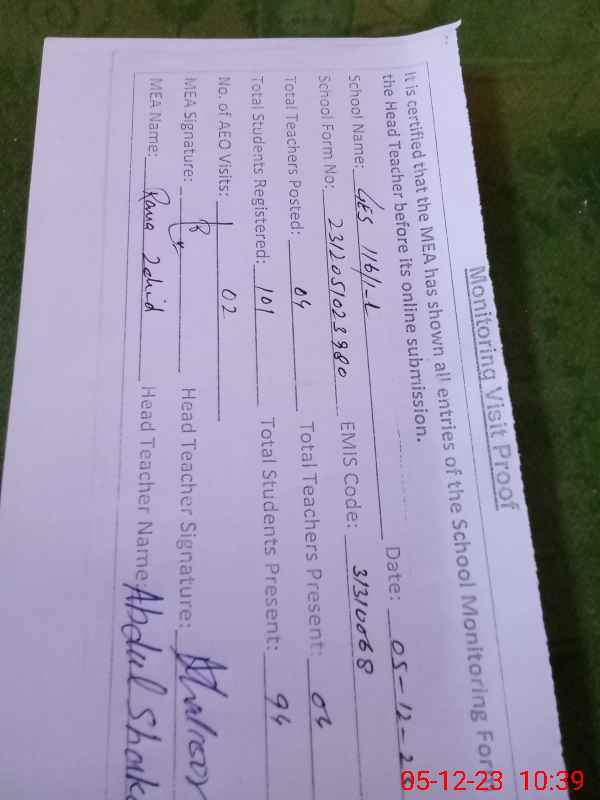 Monitoring Visit Proof
It is certified that the MEA has shown all entries of the School Monitoring Form
the Head Teacher before its online submission.
School Name: GES 116/1-L Date: 05-12-2
School Form No: 2312051023980 EMIS Code: 31310068
Total Teachers Posted: 04 Total Teachers Present: 04
Total Students Registered: 101 Total Students Present: 94
No. of AEO Visits: 02
MEA Signature: Head Teacher Signature:
MEA Name: Rana Zahid Head Teacher Name: Abdul Shak
05-12-23 10:39